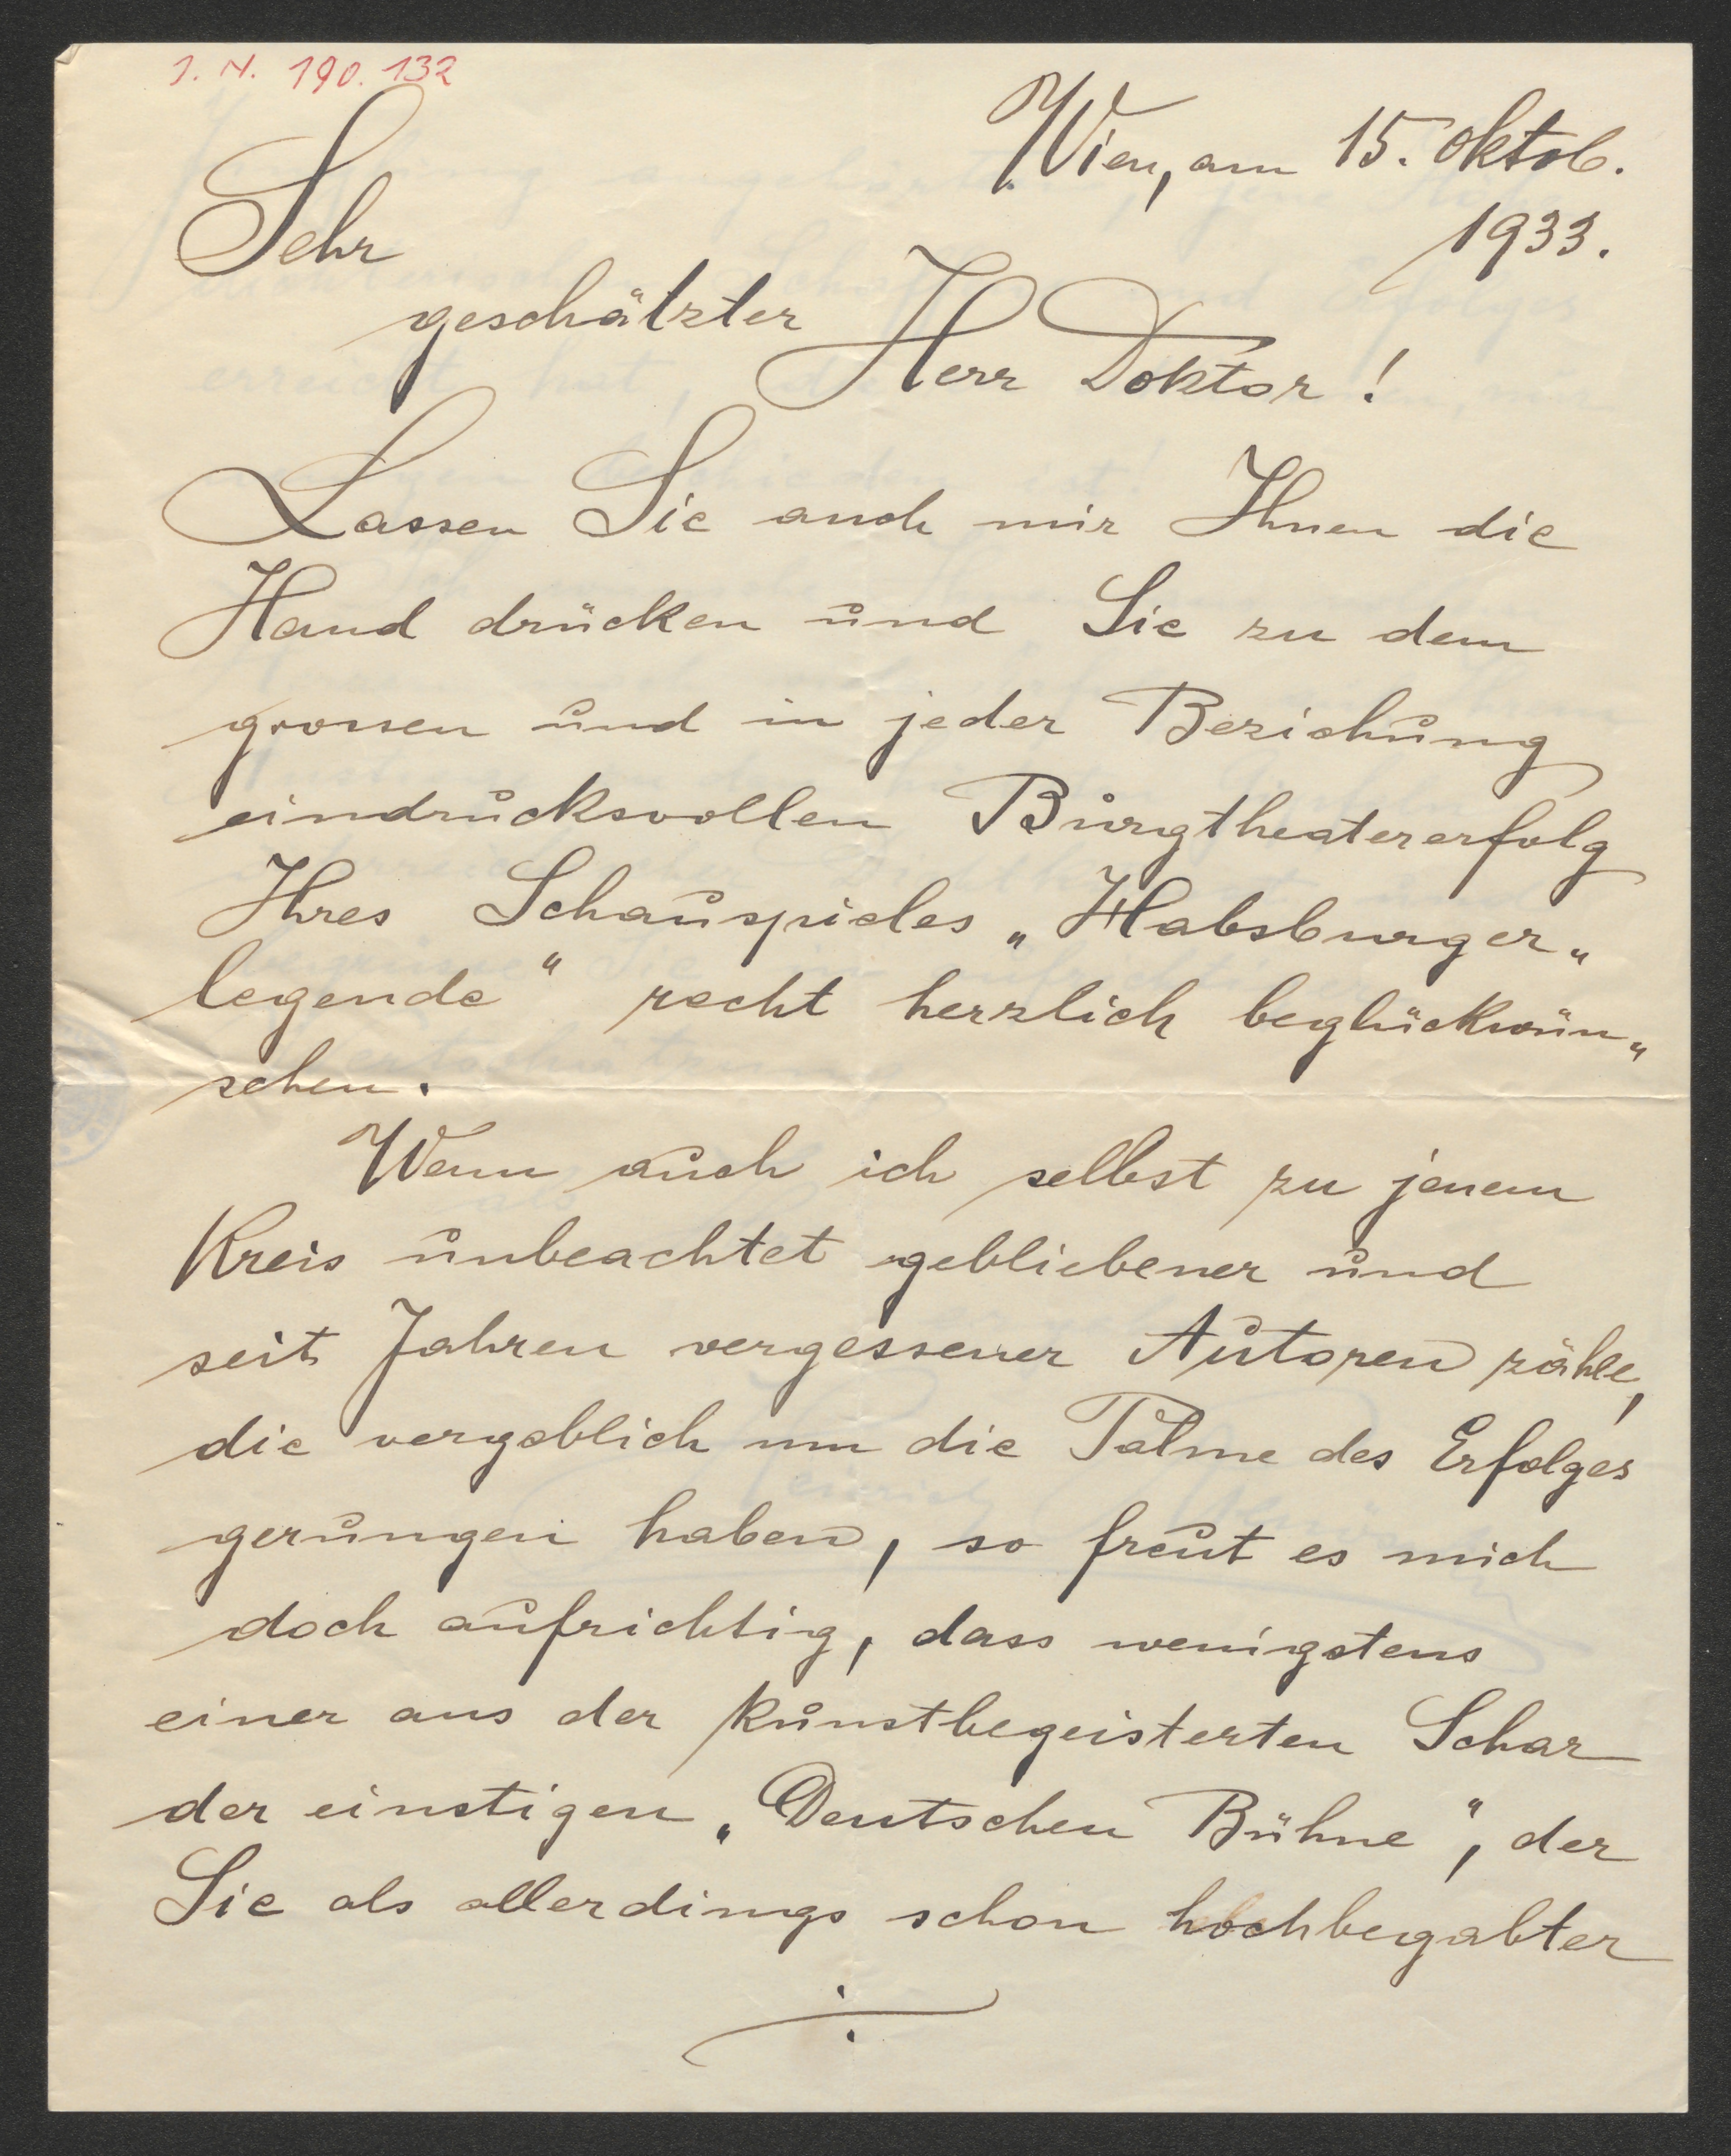 J. N. 190.132
Wien, am 15. Oktob.
1933.
Sehr
geschätzter Herr Doktor!
Lassen Sie auch mir Ihnen die
Hand drücken und Sie zu dem
grossen und in jeder Beziehung
eindrucksvollen Burgtheatererfolg
Ihres Schauspieles „Habsburger„
legende“ recht herzlich beglückwün„
schen.
Wenn auch ich selbst zu jenem
Kreis unbeachtet gebliebener und
seit Jahren vergessener Autoren zähle,
die vergeblich um die Palme des Erfolges
gerungen haben, so freut es mich
doch aufrichtig, dass wenigstens
einer aus der kunstbegeisterten Schar
der einstigen „Deutschen Bühne“, der
Sie als allerdings schon hochbegabter